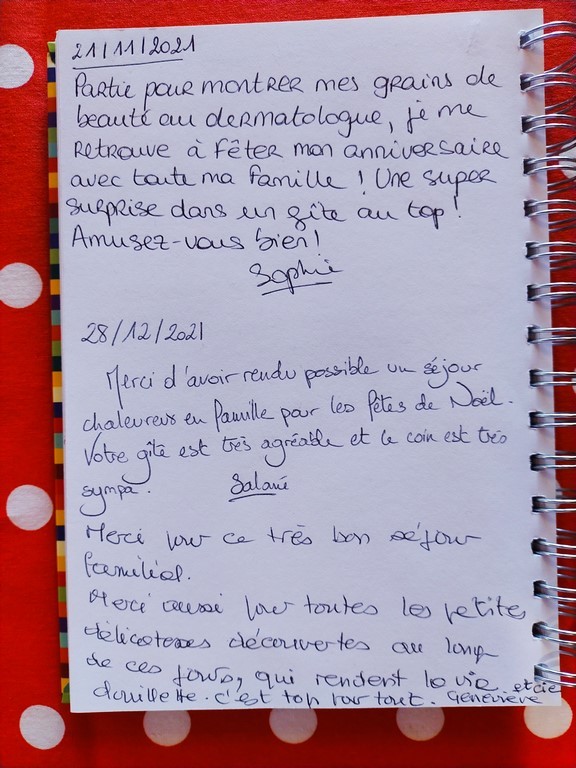 21/11/2021
Partie pour montrer mes grains de
beauté au dermatologue, je me
retrouve à fêter mon anniversaire
avec toute ma famille ! Une super
surprise dans un gîte au top !
Amusez-vous bien !
Sophie
28/12/2021
Merci d'avoir rendu possible un séjour
chaleureux en famille pour les fêtes de Noël.
Votre gîte est très agréable et le coin est très
sympa.
Merci pour ce très bon séjour
familial.
Merci aussi pour toutes les petites
délicatesses découvertes au long
de ces jours, qui rendent la vie
douillette. c'est top pour tout. Geneviève
et cie